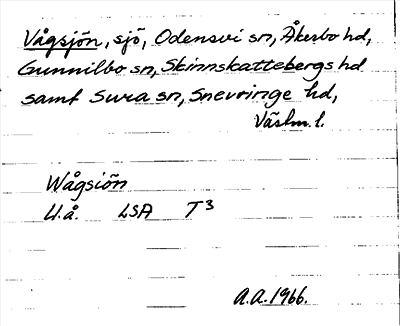 Vågsjön, sjö, Odensvi sn, Åkerbo hd,
Gunnilbo sn, Skinnskattebergs hd
samt Sura sn, Snevringe hd,
Västm. l.
Wågsiön
U.å. LSA T3
A.A. 1966.